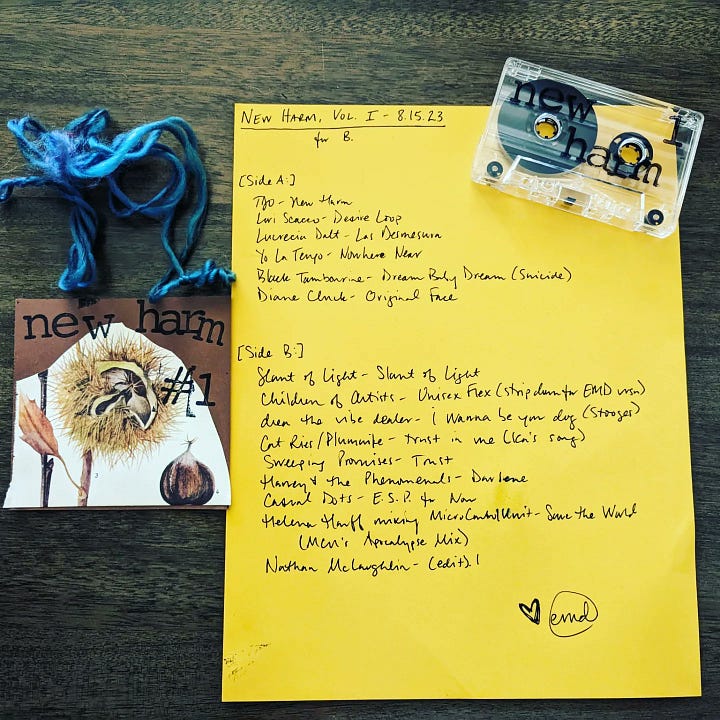 NEW HARM, VOL. I - 8.15.23
for B.
[Side A:]
TJO - New Harm
Lori Scacco - Desire Loop
Lucrecia Dalt - Las Desmesura
Yo La Tengo - Nowhere Near
Black Tambourine - Dream Baby Dream (Suicide)
Diane Cluck - Original Face
[Side B:]
Slant of Light - Slant of Light
Children of Artists - Unisex Flex (strip down for EMD vrsn)
drea the vibe dealer - i Wanna be your dog (Stooges)
Cat Ries/Plumwife - trust in me (Kaa's song)
Sweeping Promises - Trust
Harvey & the Phenomenals - Darlene
Casual Dots - E.S.P. for Now
Helena Hauff mixing MicroControlUnit - Save the World
(MCU's Apocalypse Mix)
Nathan McLaughlin - (edit).1
♥ emd
new
harm
1
new harm
#1
3
4